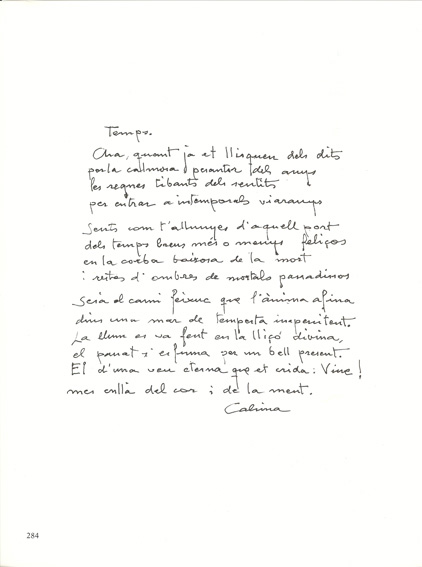 Temps.
Ara, quant ja et llisquen dels dits
per la calmosa dels anys
les regnes tibants dels sentits
per entrar a intemporals viaranys
Sents com t'allunyes d'aquell port
dels temps breus més o menys feliços
en la boirosa de la mort
i restes d'ombres de mortals
Serà el camí feixuc que l'ànima afina
dins una mar de tempesta inapenitent.
La llum es va fent en la lliçó divina,
el passat s'esfuma per un bell present.
El d'una veu eterna que et crida: Vine!
mes enllà del cor i de la ment.
284